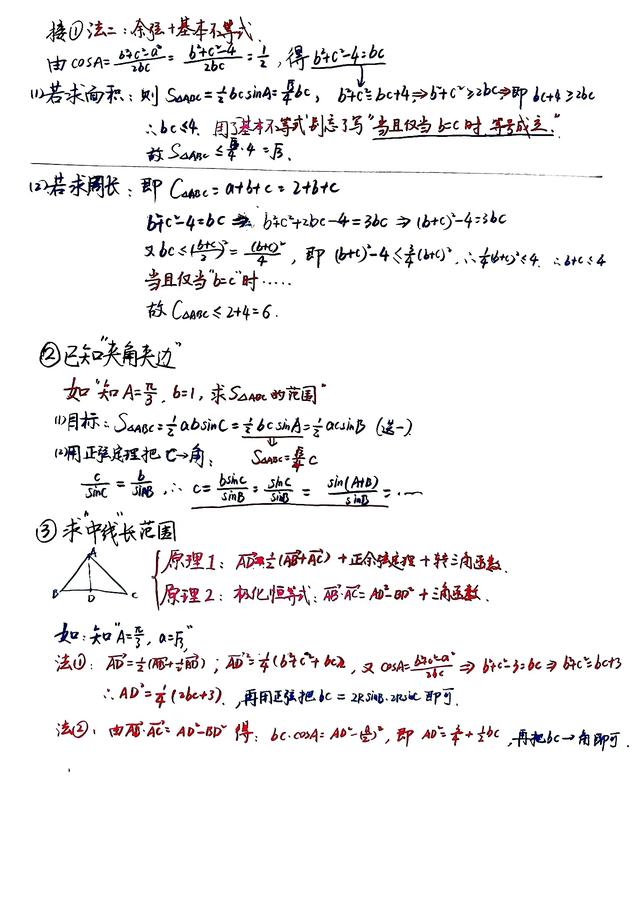 接①法二:余弦+基本不等式.
由cosA=\frac{b²+c²-a²}{2bc}=\frac{b²+c²-4}{2bc}=\frac{1}{2},得b²+c²-4=bc
(1)若求面积:则S△ABC=\frac{1}{2}bcsinA=\frac{√3}{4}bc, b²+c²=bc+4,⇒b²+c²≥2bc⇒即bc+4≥2bc
∴bc≤4. 用了基本不等式别忘了写"当且仅当b=c时,等号成立."
故S△ABC≤\frac{√3}{4}·4=√3.
(2)若求周长:即C△ABC=a+b+c=2+b+c
b²+c²-4=bc⇒b²+c²+2bc-4=3bc⇒(b+c)²-4=3bc
又bc≤(\frac{b+c}{2})²=\frac{(b+c)²}{4},即(b+c)²-4≤\frac{3}{4}(b+c)²,∴\frac{1}{4}(b+c)²≤4.∴b+c≤4
当且仅当"b=c"时……
故C△ABC≤2+4=6.
②已知"夹角夹边"
如"知A=\frac{π}{3},b=1,求S△ABC的范围"
(1)目标:S△ABC=\frac{1}{2}absinC=\frac{1}{2}bcsinA=\frac{1}{2}acsinB(选一)
(2)用正弦定理把c→角: S△ABC=\frac{√3}{4}c
\frac{c}{sinC}=\frac{b}{sinB},∴c=\frac{bsinC}{sinB}=\frac{sinC}{sinB}=\frac{sin(A+B)}{sinB}=……
③求"中线"长范围
原理1:AD=\frac{1}{2}(AB+AC)+正余弦定理+转三角函数.
A B D C
原理2:极化恒等式:AB·AC=AD²-BD²+三角函数.
如:知"A=\frac{π}{3},a=√3"
法①:AD=\frac{1}{2}(AB+AC);AD²=\frac{1}{4}(b²+c²+bc),又cosA=\frac{b²+c²-a²}{2bc}⇒b²+c²-3=bc⇒b²+c²=bc+3
∴AD²=\frac{1}{4}(2bc+3).再用正弦把bc=2RsinB·2RsinC即可.
法②:由AB·AC=AD²-BD²得:bc·cosA=AD²-(\frac{a}{2})²,即AD²=\frac{3}{4}+\frac{1}{2}bc,再把bc→角即可.